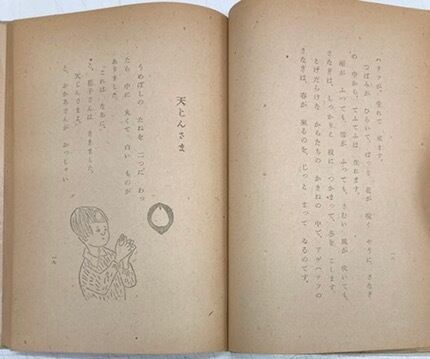 ハチフが、生れて 来ます。
つぼみが ひらいて、ぱつと 花が 咲く やうに、さなぎ
の 中から、てふてふは 生れます。
雨が ふつても、雪が ふつても、さむい 風が 吹いても、
さなぎは、しつかりと 枝に つかまつて、冬を こします。
とげだらけな からたちの かきねの 中で、アゲハテフの
さなぎは、春が 來るのを、じつと まつて ゐるのです。
一八
天じんさま
うめぼしの たねを 二つに わつ
たら 中に 丸くて 白い ものが
ありました。
「これは なあに。」
と、 子さんは ききました。
「天じんさまよ。」
と、おかあさんが おつしやい
一九